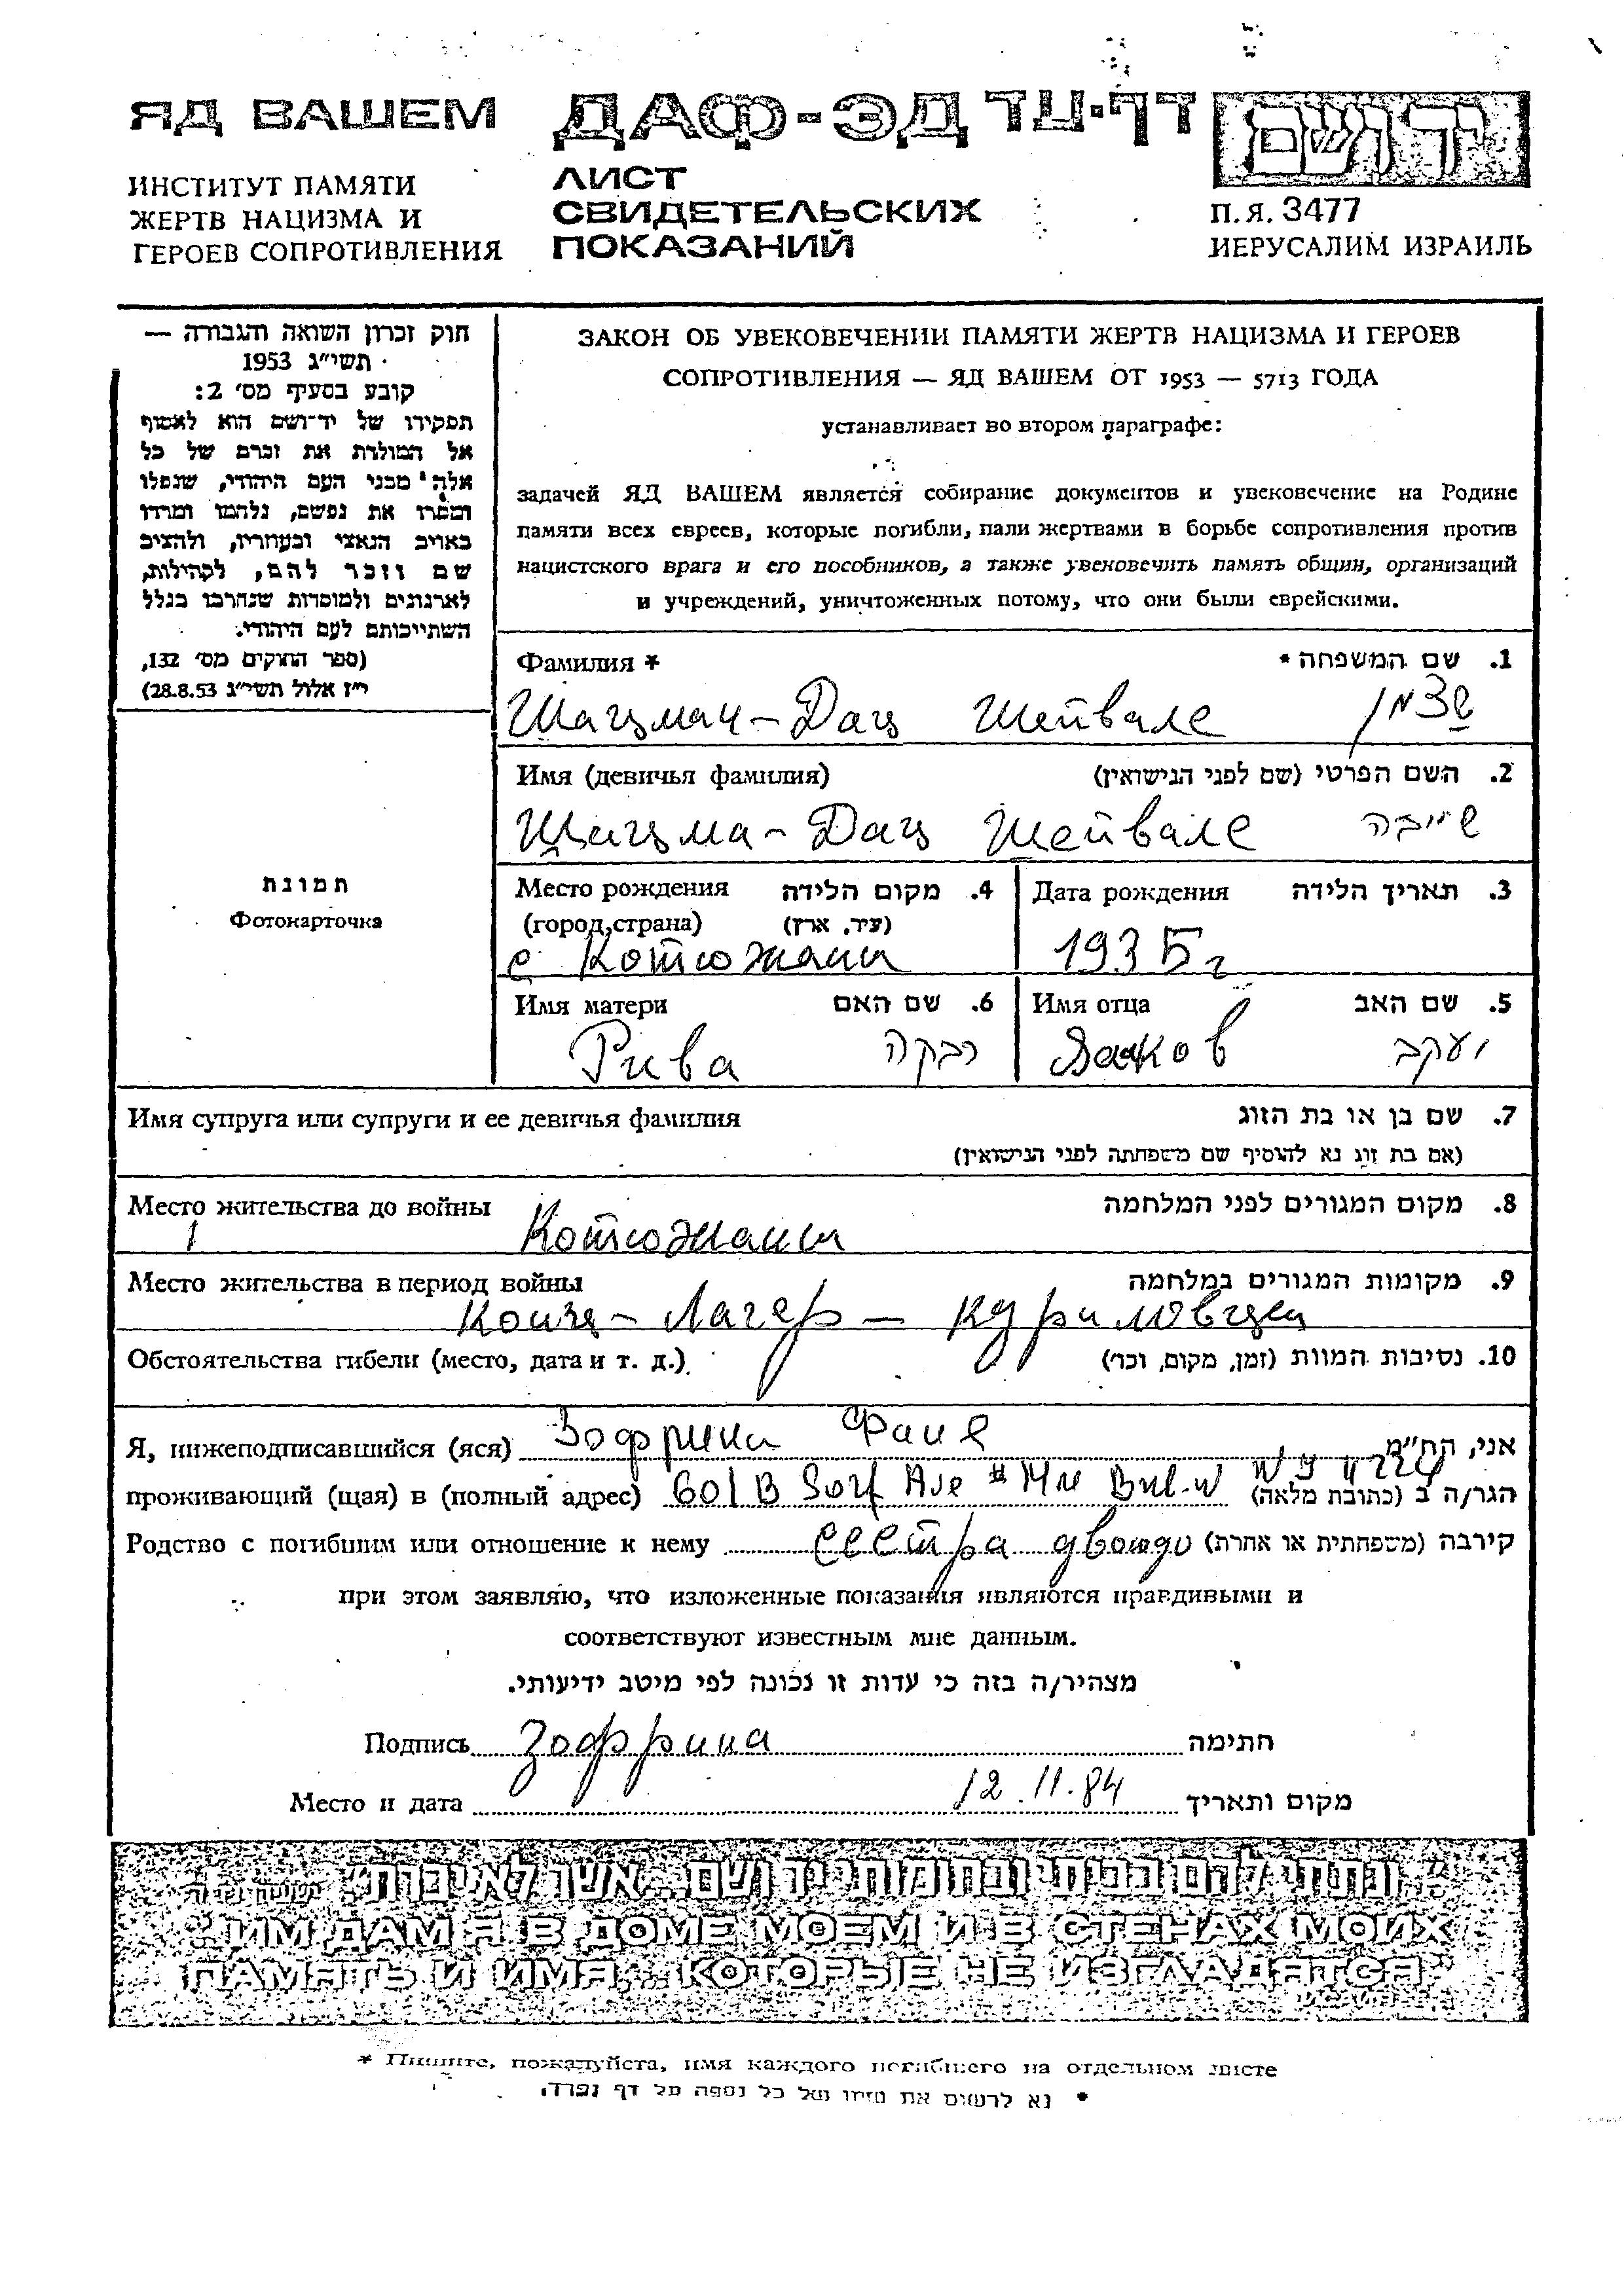 ЯД ВАШЕМ ДАФ-ЭД דף-עד יד ושם
ИНСТИТУТ ПАМЯТИ
ЖЕРТВ НАЦИЗМА И
ГЕРОЕВ СОПРОТИВЛЕНИЯ
ЛИСТ
СВИДЕТЕЛЬСКИХ
ПОКАЗАНИЙ
П.Я. 3477
ИЕРУСАЛИМ ИЗРАИЛЬ
חוק זכרון השואה והגבורה —
תשי״ג 1953
קובע בסעיף מס׳ 2:
תפקידו של יד־ושם הוא לאסוף
אל המולדת את זכרם של כל
אלה מבני העם היהודי, שנפלו
ומסרו את נפשם, נלחמו ומרדו
באויב הנאצי ובעוזריו, ולהציב
שם וזכר להם, לקהילות,
לארגונים ולמוסדות שנחרבו בגלל
השתייכותם לעם היהודי.
(ספר החוקים מס׳ 132,
י״ז אלול תשי״ג 28.8.53)
ЗАКОН ОБ УВЕКОВЕЧЕНИИ ПАМЯТИ ЖЕРТВ НАЦИЗМА И ГЕРОЕВ
СОПРОТИВЛЕНИЯ — ЯД ВАШЕМ ОТ 1953 — 5713 ГОДА
устанавливает во втором параграфе:
задачей ЯД ВАШЕМ является собирание документов и увековечение на Родине
памяти всех евреев, которые погибли, пали жертвами в борьбе сопротивления против
нацистского врага и его пособников, а также увековечить память общин, организаций
и учреждений, уничтоженных потому, что они были еврейскими.
Фамилия * 1. שם המשפחה *
Шацман-Дац Шейвале שצמן
Имя (девичья фамилия) 2. השם הפרטי (שם לפני הנישואין)
Шацма-Дац Шейвале שייבה
תמונת
Фотокарточка
Место рождения 4. מקום הלידה
(город,страна) (עיר, ארץ)
с Котюжани
Дата рождения 3. תאריך הלידה
1935г
Имя матери 6. שם האם
Рива רבקה
Имя отца 5. שם האב
Яаков יעקב
Имя супруга или супруги и ее девичья фамилия 7. שם בן או בת הזוג
(אם בת זוג נא להוסיף שם משפחתה לפני הנישואין)
Место жительства до войны 8. מקום המגורים לפני המלחמה
Котюжани
Место жительства в период войны 9. מקומות המגורים במלחמה
Конц-Лагерь-
Обстоятельства гибели (место, дата и т. д.) 10. נסיבות המוות (זמן, מקום, וכו׳)
Я, нижеподписавшийся (яся) Зофрина Фаня אני, הח״מ
проживающий (щая) в (полный адрес) 601 B Surf Ave NY 11224 הגר/ה ב (כתובת מלאה)
Родство с погибшим или отношение к нему сестра קירבה (משפחתית או אחרת)
при этом заявляю, что изложенные показания являются правдивыми и
соответствуют известным мне данным.
מצהיר/ה בזה כי עדות זו נכונה לפי מיטב ידיעותי.
Подпись Зофрина חתימה
Место и дата 12.11.84 מקום ותאריך
״ונתתי להם בביתי ובחומותי יד ושם...אשר לא יכרת״ ישעיהו נו ה
"ИМ ДАМ Я В ДОМЕ МОЕМ И В СТЕНАХ МОИХ
ПАМЯТЬ И ИМЯ,..КОТОРЫЕ НЕ ИЗГЛАДЯТСЯ"
* Пишите, пожалуйста, имя каждого погибшего на отдельном листе
* נא לרשום את שמו של כל נספה על דף נפרד.